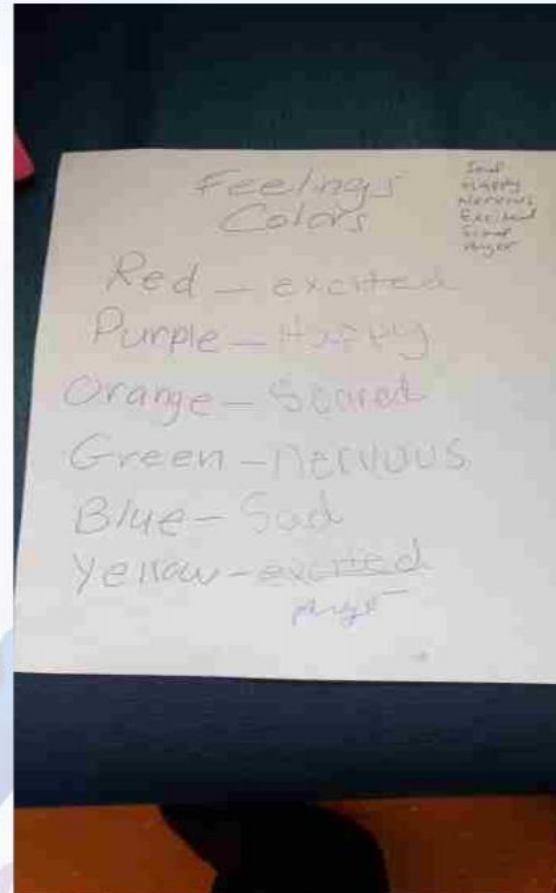 Feelings
Colors
Sad
Happy
Nervous
Excited
Scared
Anger
Red - excited
Purple - Happy
Orange - Scared
Green - nervous
Blue - Sad
Yellow - excited
Anger